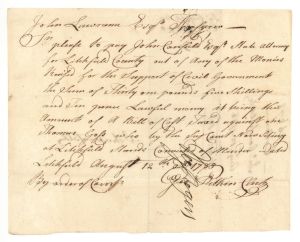 John Lawrence Esqr. Treasurer
Sir please to pay John Canfield Esqr. State Attorney
for Litchfield County out of Any of the Monies
Raised for the Support of Civil Government
the Sum of Thirty one pounds five Shillings
and Six pence Lawful money it being the
Amount of A Bill of Cost Taxed against one
Thomas Goss who by the Supr. Court Now Sitting
at Litchfield Stands Convicted of Murder Dated
Litchfield August 12th 1785
By order of Court Geo Pitkin Clerk